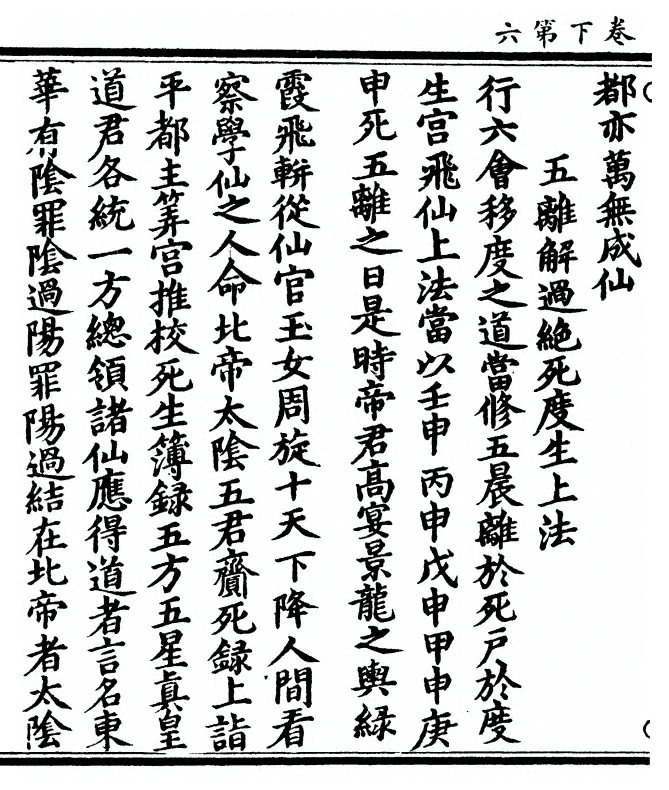 卷下第六
都亦萬無成仙
五離解過絶死度生上法
行六會移度之道當修五晨離於死戸於度
生宮飛仙上法當以壬申丙申戊申甲申庚
申死五離之日是時帝君髙宴景龍之輿緑
霞飛軿從仙官玉女周旋十天下降人間看
察學仙之人命北帝太隂五君齎死録上詣
平都主筭宮推校死生簿録五方五星真皇
道君各統一方總領諸仙應得道者言名東
華有隂罪隂過陽罪陽過結在北帝者太隂